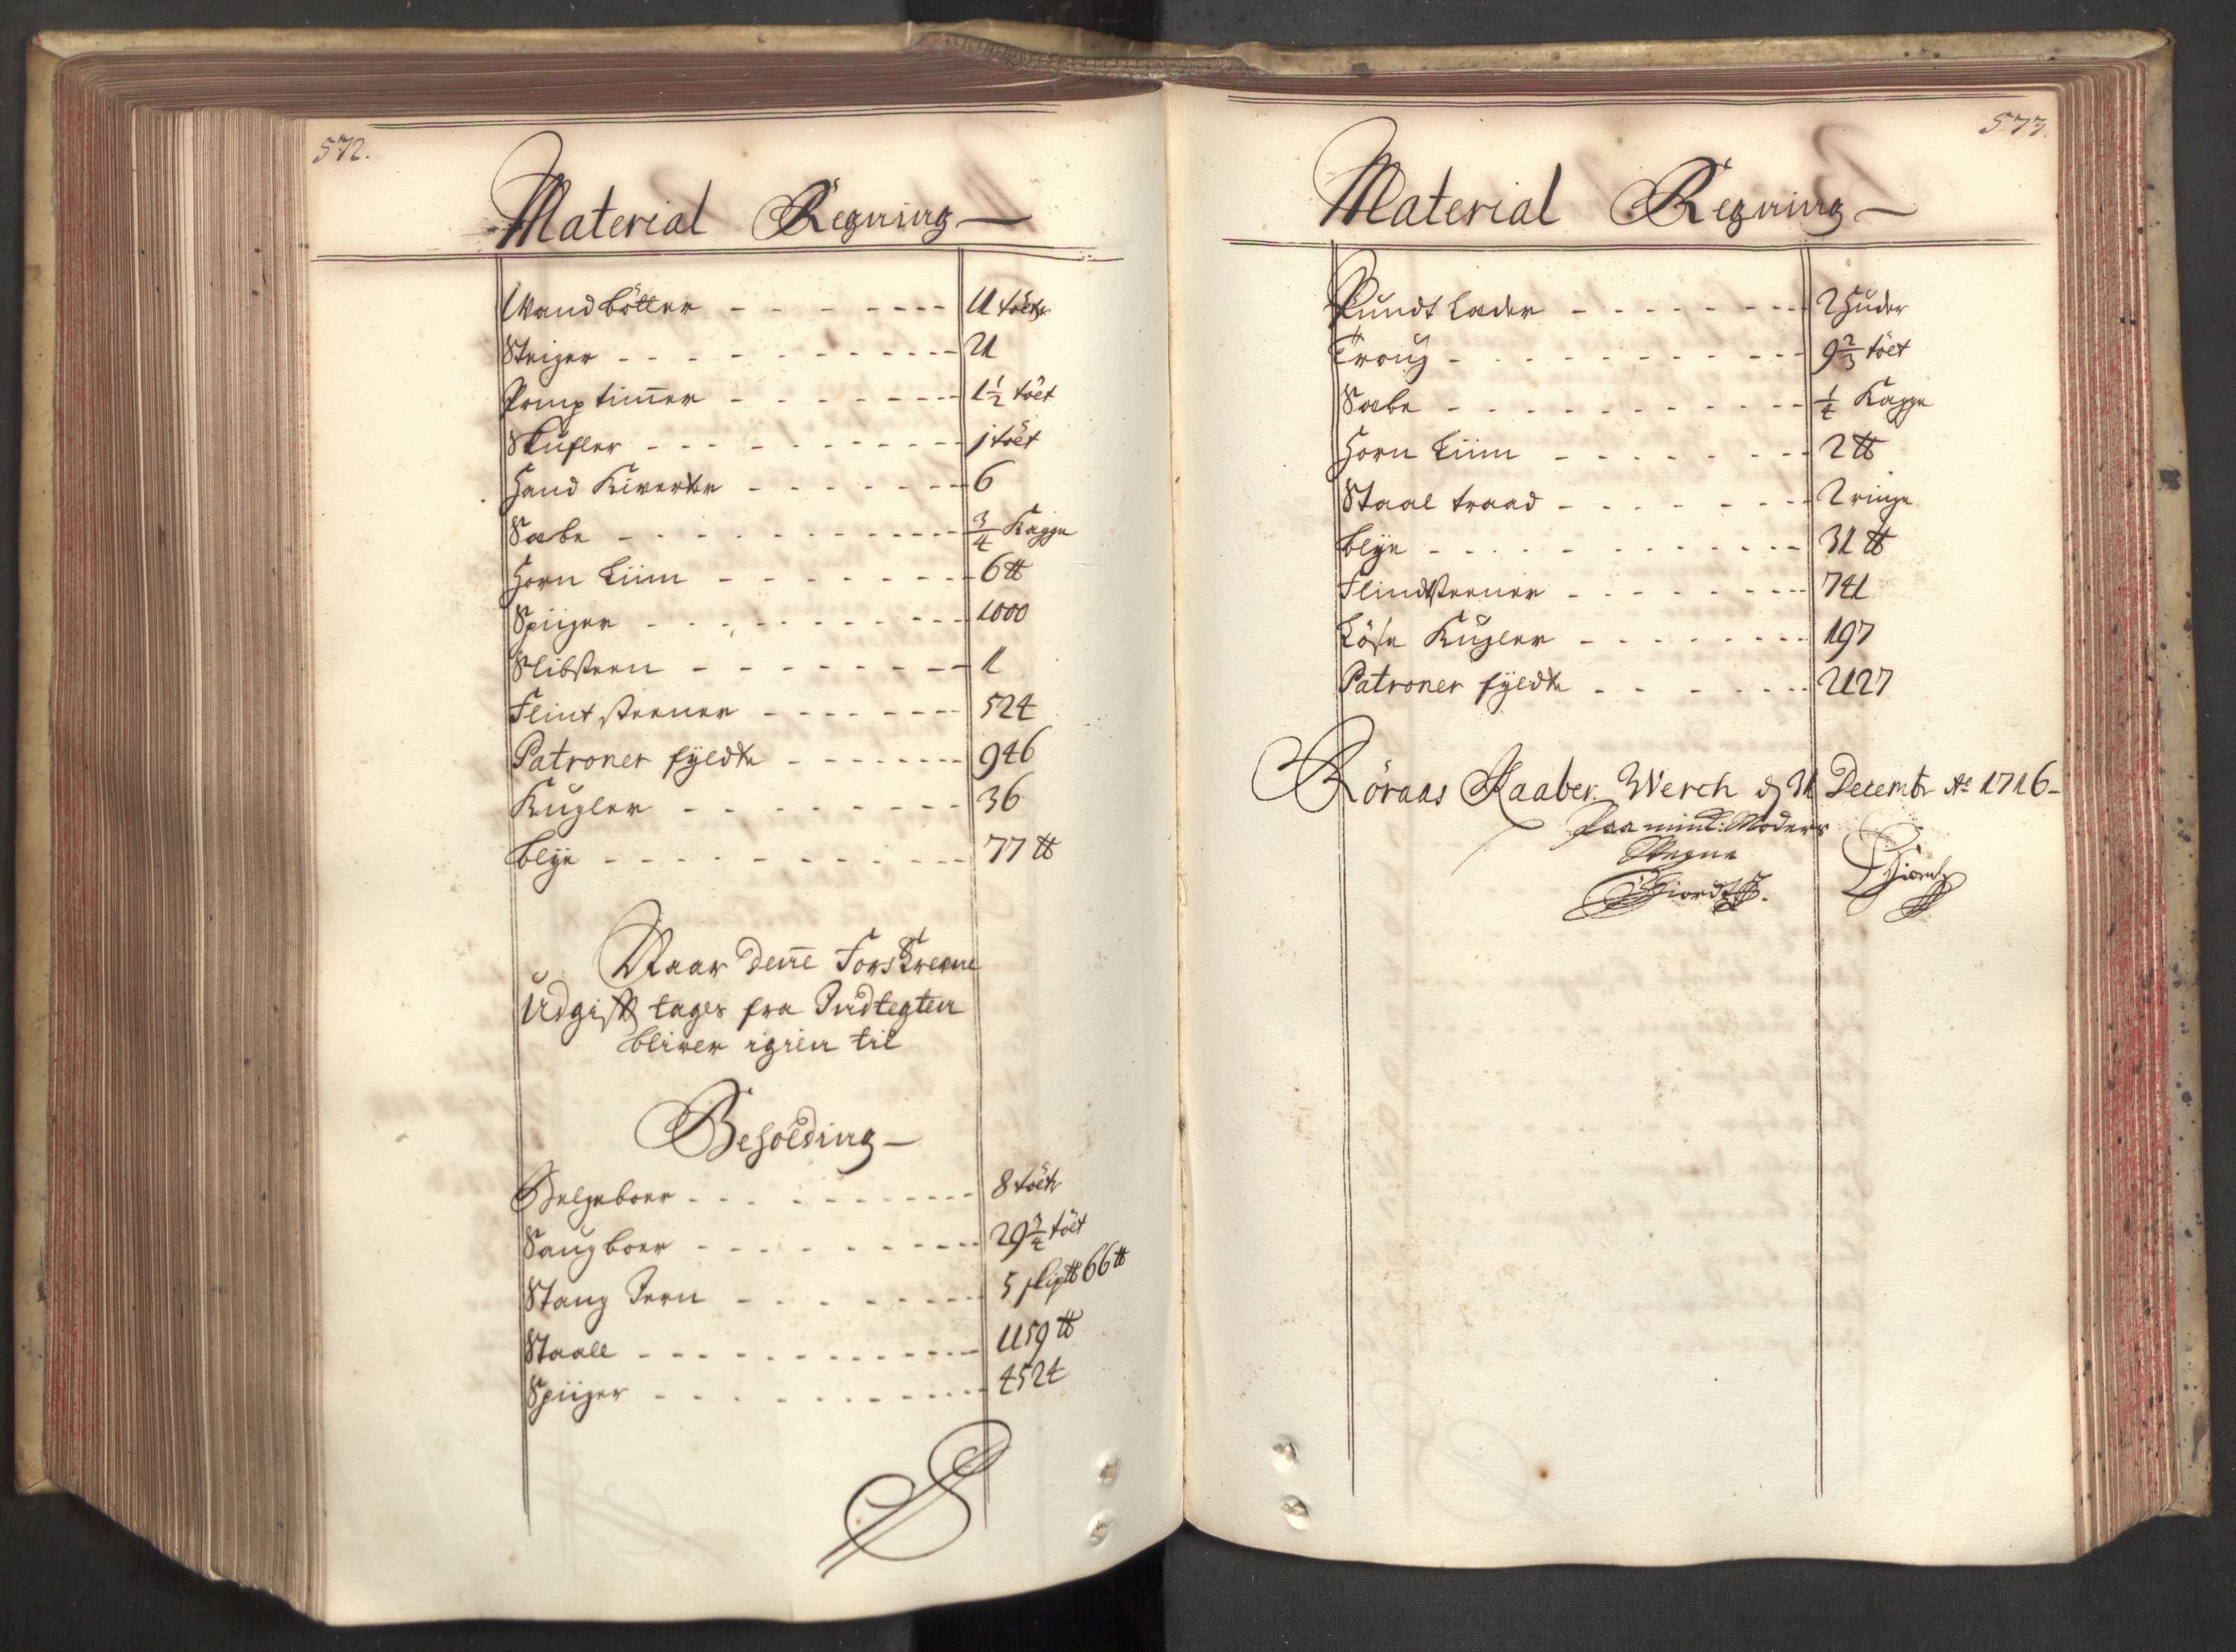 572.
Material Regning
Wand bötter 11 tölt
Steiger 21
Pomp tim̄er 1½ tölt
Skufler 1 tölt
Hand Kiverter 6
Sæbe ¾ Kagge
Horn Liim 6 ℔
Spiiger 1000
Slibsteen 1
Flint steener 524
Patroner fyldte 946
Kugler 36
blye 77 ℔
Naar Den̄e Forskrevne
Udgift tages fra Indtegten
bliver igien til
Beholding
Belgeboer 8 tölt
Saugboer 29¾ tölt
Stang Jern 5 skip℔ 66 ℔
Staall 1159 ℔
Spiiger 4524
573.
Material Regning
Pundt Læder 2 Huder
Troug 9⅔ tölt
Sæbe ¼ Kagge
Horn Liim 2 ℔
Staal traad 2 ringe
blye 31 ℔
Flindtsteener 741
Löse Kugler 197
Patroner fyldte 2127
Röraas Kaaber Werch d 31 Decembr Ao 1716
Paa min Moders
Vegne